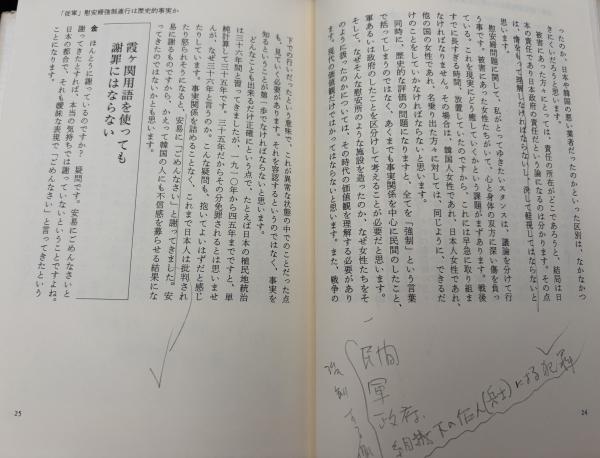 ったのか、日本や韓国の悪い業者だったのかといった区別は、なかなかつ
きにくいだろうと思います。
被害にあった方々にとっては、責任の所在がどこであろうと、結局は日
本の責任であり日本政府の責任だという論になるのは分かります。その点
は、情をもって理解しなければならないし、決して軽視してはならないと
思います。
慰安婦問題に関して、私がとってゆきたいスタンスは、議論を分けて行
う事です。被害にあった女性たちがいて、心と身体の双方に深い傷を負っ
ている。これを現実にどう癒していくかという課題がまずあります。戦後
すでに長すぎる時間、放置していたのですから、これには早急に取り組ま
なければなりません。その場合は、韓国人女性であれ、日本人女性であれ、
他の国の女性であれ、名乗り出た方々に対しては、同じように、できるだ
けのことをしていかなければならないと思います。
同時に、歴史的な評価の問題になりますと、全てを「強制」という言葉
で括ってしまうのではなく、あくまでも事実関係を中心に民間のしたこと、
軍あるいは政府のしたことを区分けして考えることが必要だと思います。
そして、なぜそんな慰安所のような施設を造ったのか、なぜ女性たちをそ
のように扱ったのかについては、その時代の価値観を理解する必要があり
ます。現代の価値観だけではかってはならないと思います。また、戦争の
24
民間
軍
政府
組織下の個人(兵士)による犯罪
「従軍」慰安婦強制連行は歴史的事実か
下での行いだったという意味で、これが異常な状態の中でのことだった点
も、見ていく必要があります。それを容認するというのではなく、事実を
知るということが第一歩でなければならないと思います。
どんなことも出来るだけ正確にという点で、たとえば日本の植民地統治
は三十六年間と習ってきましたが、一九一〇年から四五年までですと、単
純計算して三十五年です。三十五年だからその分免罪されるとは思いませ
んが、なぜ三十六年と言うのか、こんな疑問も、抱いてよいはずだと感じ
たりしています。事実関係を詰めることなく、これまで日本人は批判され
たり怒られそうになると、安易に「ごめんなさい」と謝ってきました。安
易に謝るものですから、かえって韓国の人にも不信感を募らせる結果にな
ってきたのではないかとも思います。
霞ヶ関用語を使っても
謝罪にはならない
金 ほんとうに謝っているのですか? 疑問です。安易にごめんなさいと
謝ってきたとすれば、本当の気持ちでは謝っていないということですよね。
日本の都合で、それも曖昧な表現で「ごめんなさい」と言ってきたという
ことになります。
25